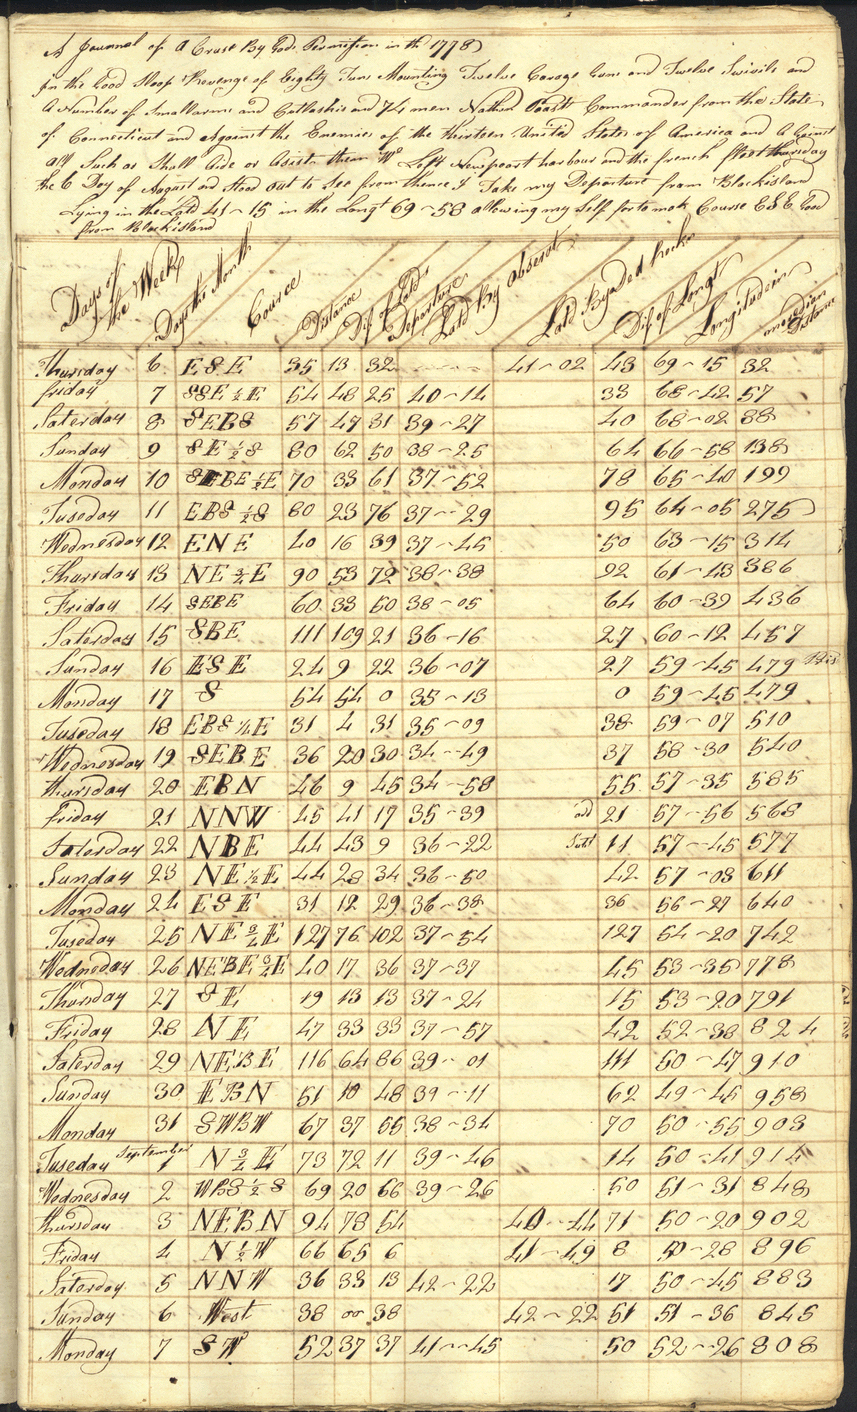 A Journal of A Cruse By Gods Permission in the 1778
In the Good Sloop Revenge of Eighty Tuns Mounting Twelve Carage Guns and Twelve Swivils and
A Number of Smallarms and Cutlashis and 74 men Nathan Post Commander from the State
of Connecticut and Against the Enemies of the thirteen United States of America and Against
all Such as Shall Aide or Asist them We Left Newport harbour and the french fleet thursday
the 6 Day of August and Stood out to See from thence I Take my Departure from Blockisland
Lying in the Latd 41~15 in the Longt 69~58 allowing my Self for to mak Course ESE Good
from Blockisland
Days of the Week Days the Month Course Distance Dif of Latd Departure Latd By Observt Latd By a ded Recko Dif of Longt Longitude in meredian Distance
Thursday 6 ESE 35 13 32 41~02 43 69~15 32
friday 7 SSE ½E 54 48 25 40~14 33 68~42 57
Saterday 8 SEBS 57 47 31 39~27 40 68~02 88
Sunday 9 SE ½S 80 62 50 38~25 64 66~58 138
Monday 10 SEBE ½E 70 33 61 37~52 78 65~40 199
Tuseday 11 EBS ½S 80 23 76 37~29 95 64~05 275
Wednesday 12 ENE 40 16 39 37~45 50 63~15 314
Thursday 13 NE ¾E 90 53 72 38~38 92 61~43 386
Friday 14 SEBE 60 33 50 38~05 64 60~39 436
Saterday 15 SBE 111 109 21 36~16 27 60~12 457
Sunday 16 ESE 24 9 22 36~07 27 59~45 479
Monday 17 S 54 54 0 35~13 0 59~45 479
Tuseday 18 EBS ¼E 31 4 31 35~09 38 59~07 510
Wednesday 19 SEBE 36 20 30 34~49 37 58~30 540
thursday 20 EBN 46 9 45 34~58 55 57~35 585
friday 21 NNW 45 41 17 35~39 ad 21 57~56 568
Saterday 22 NBE 44 43 9 36~22 Sutt 11 57~45 577
Sunday 23 NE ½E 44 28 34 36~50 42 57~03 611
Monday 24 ESE 31 12 29 36~38 36 56~27 640
Tuseday 25 NE ¾E 127 76 102 37~54 127 54~20 742
Wedneday 26 NEBE ¾E 40 17 36 37~37 45 53~35 778
Thursday 27 SE 19 13 13 37~24 15 53~20 791
Friday 28 NE 47 33 33 37~57 42 52~38 824
Saterday 29 NEBE 116 64 86 39~01 111 50~47 910
Sunday 30 EBN 51 10 48 39~11 62 49~45 958
Monday 31 SWBW 67 37 55 38~34 70 50~55 903
Tuseday September 1 N ¾E 73 72 11 39~46 14 50~41 914
Wednesday 2 WBS ½S 69 20 66 39~26 50 51~31 848
thursday 3 NEBN 94 78 54 40~44 71 50~20 902
Friday 4 N ½W 66 65 6 41~49 8 50~28 896
Saterday 5 NNW 36 33 13 42~22 17 50~45 883
Sunday 6 West 38 00 38 42~22 51 51~36 845
Monday 7 SW 52 37 37 41~45 50 52~26 808